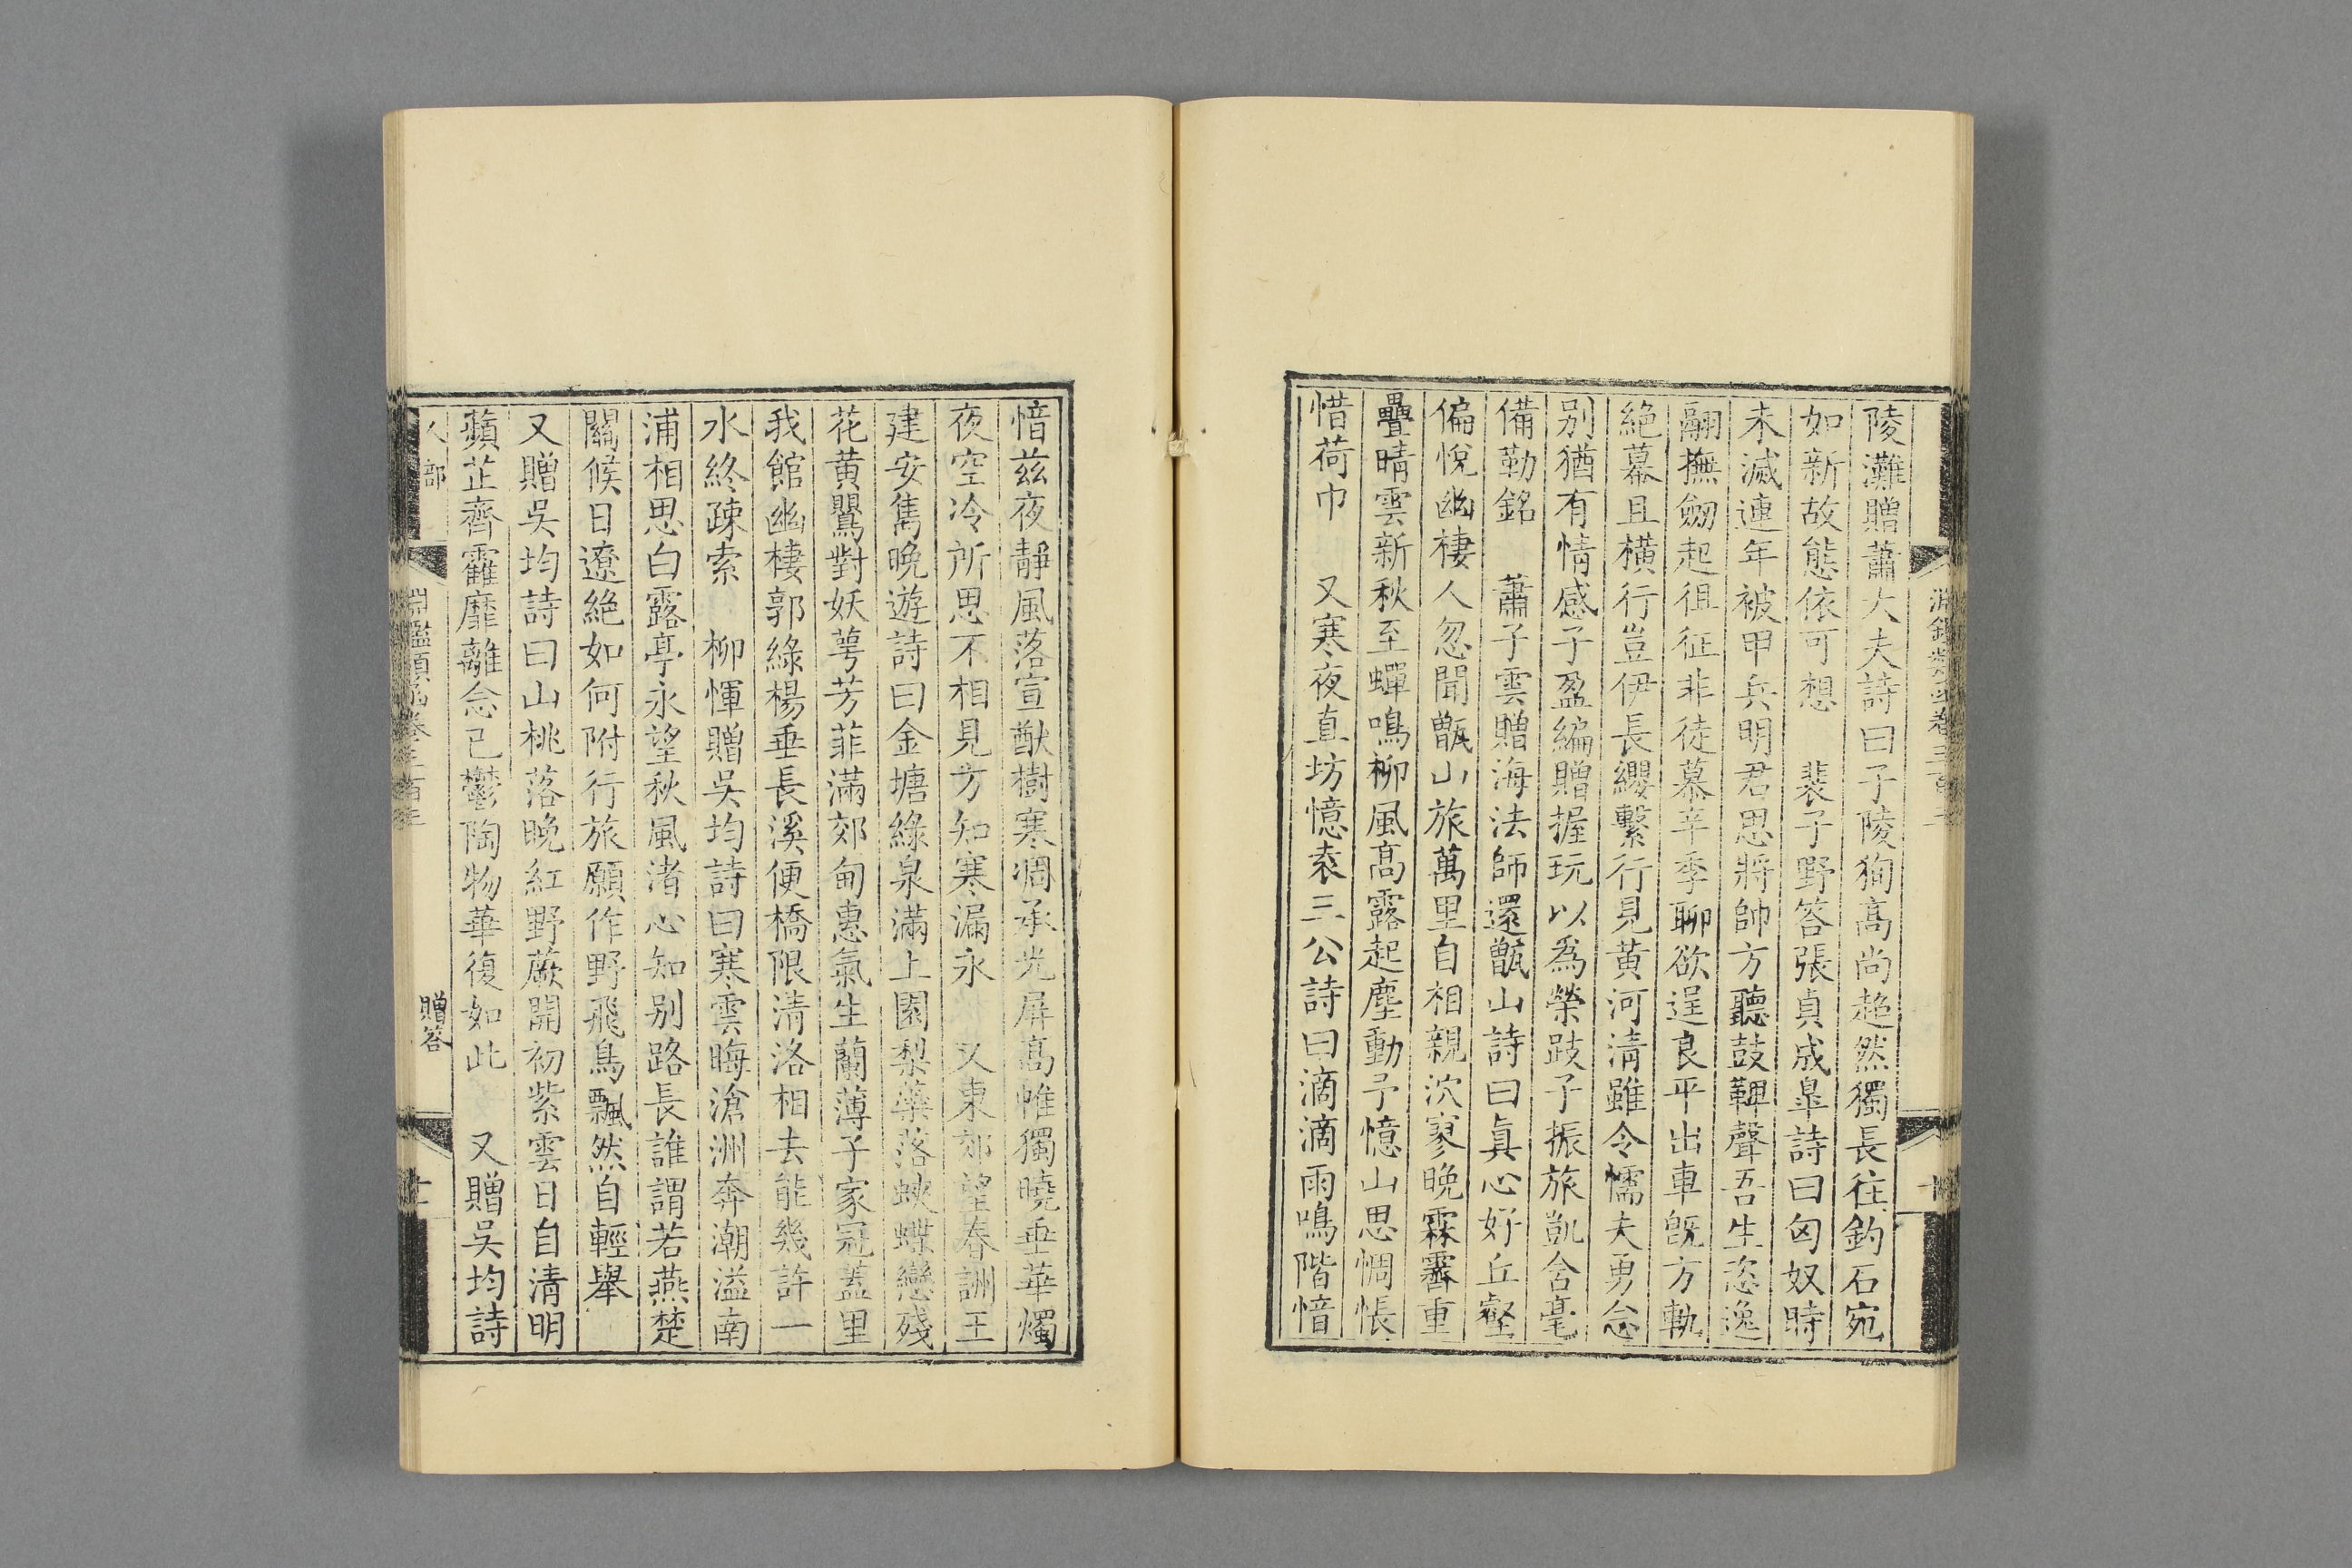 陵灘贈蕭大夫詩曰子陵狥高尚超然獨長往釣石宛
如新故態依可想　裴子野答張貞成皐詩曰匈奴時
未滅連年被甲兵明君思將帥方聽鼓鞞聲吾生恣逸
翮撫劒起徂征非徒慕辛季聊欲逞良平出車既方軌
絶幕且橫行豈伊長纓繫行見黃河淸雖令懦夫勇念
別猶有情感子盈編贈握玩以為榮跂子振旅凱含毫
備勒銘　蕭子雲贈海法師還甑山詩曰眞心好丘壑
偏悅幽棲人忽聞甑山旅萬里自相親泬寥晚霖霽重
疊晴雲新秋至蟬鳴柳風高露起塵動予憶山思惆悵
惜荷巾　又寒夜直坊憶袁三公詩曰滴滴雨鳴階愔
愔兹夜靜風落宣猷樹寒凋承光屏高帷獨曉垂華燭
夜空冷所思不相見方知寒漏永　又東郊望春詶王
建安雋晚遊詩曰金塘綠泉滿上園梨藥落蛺蝶戀殘
花黃鸎對妖萼芳菲滿郊甸惠氣生蘭薄子家冠蓋里
我館幽棲郭綠楊垂長溪便橋限淸洛相去能幾許一
水終踈索　柳惲贈吳均詩曰寒雲晦滄洲奔潮溢南
浦相思白露亭永望秋風渚心知別路長誰謂若燕楚
關候日遼絶如何附行旅願作野飛鳥飄然自輕舉
又贈吳均詩曰山桃落晚紅野蕨開初紫雲日自淸明
蘋芷齊靃靡離念已鬱陶物華復如此　又贈吳均詩
人部
淵鑑類函卷三百
贈答